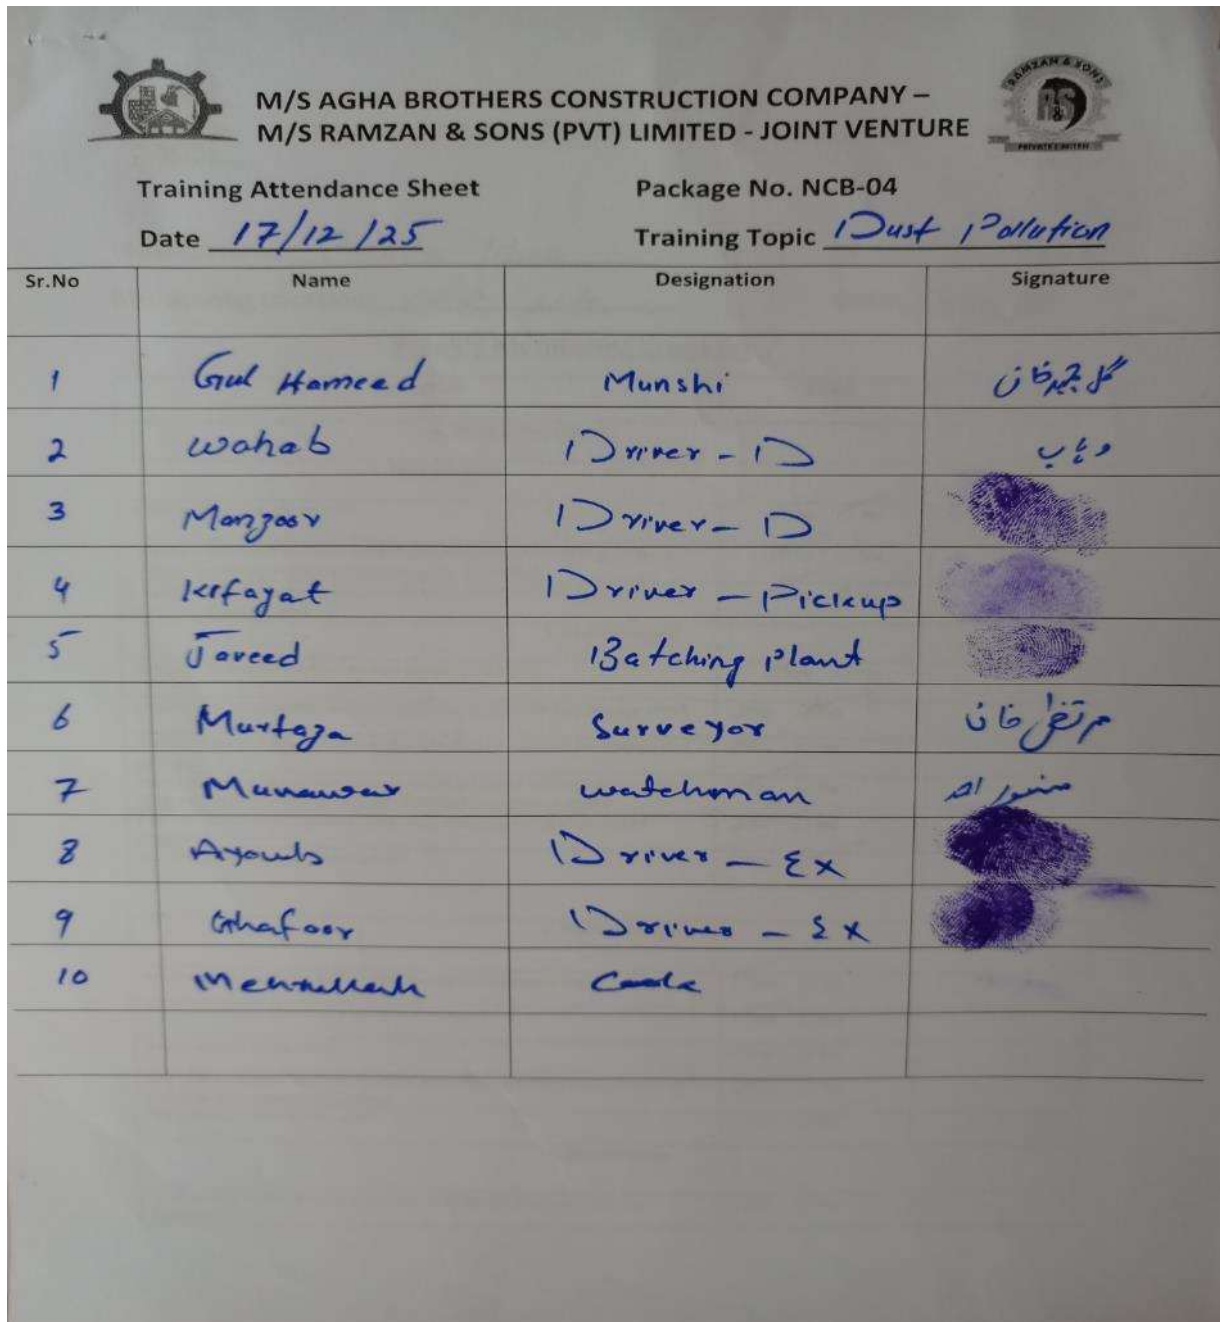 M/S AGHA BROTHERS CONSTRUCTION COMPANY –
M/S RAMZAN & SONS (PVT) LIMITED - JOINT VENTURE
RAMZAN & SONS
R&S
PRIVATE LIMITED
Training Attendance Sheet Package No. NCB-04
Date 17/12/25 Training Topic Dust Pollution
Sr.No Name Designation Signature
1 Gul Hameed Munshi گل حمید خان
2 Wahab Driver - D وہاب
3 Manzoor Driver - D
4 Kifayat Driver - Pickup
5 Javeed Batching Plant
6 Murtaza Surveyor مرتضیٰ خان
7 Munawar Watchman
8 Ayoub Driver - Ex
9 Ghafoor Driver - Ex
10 Cook